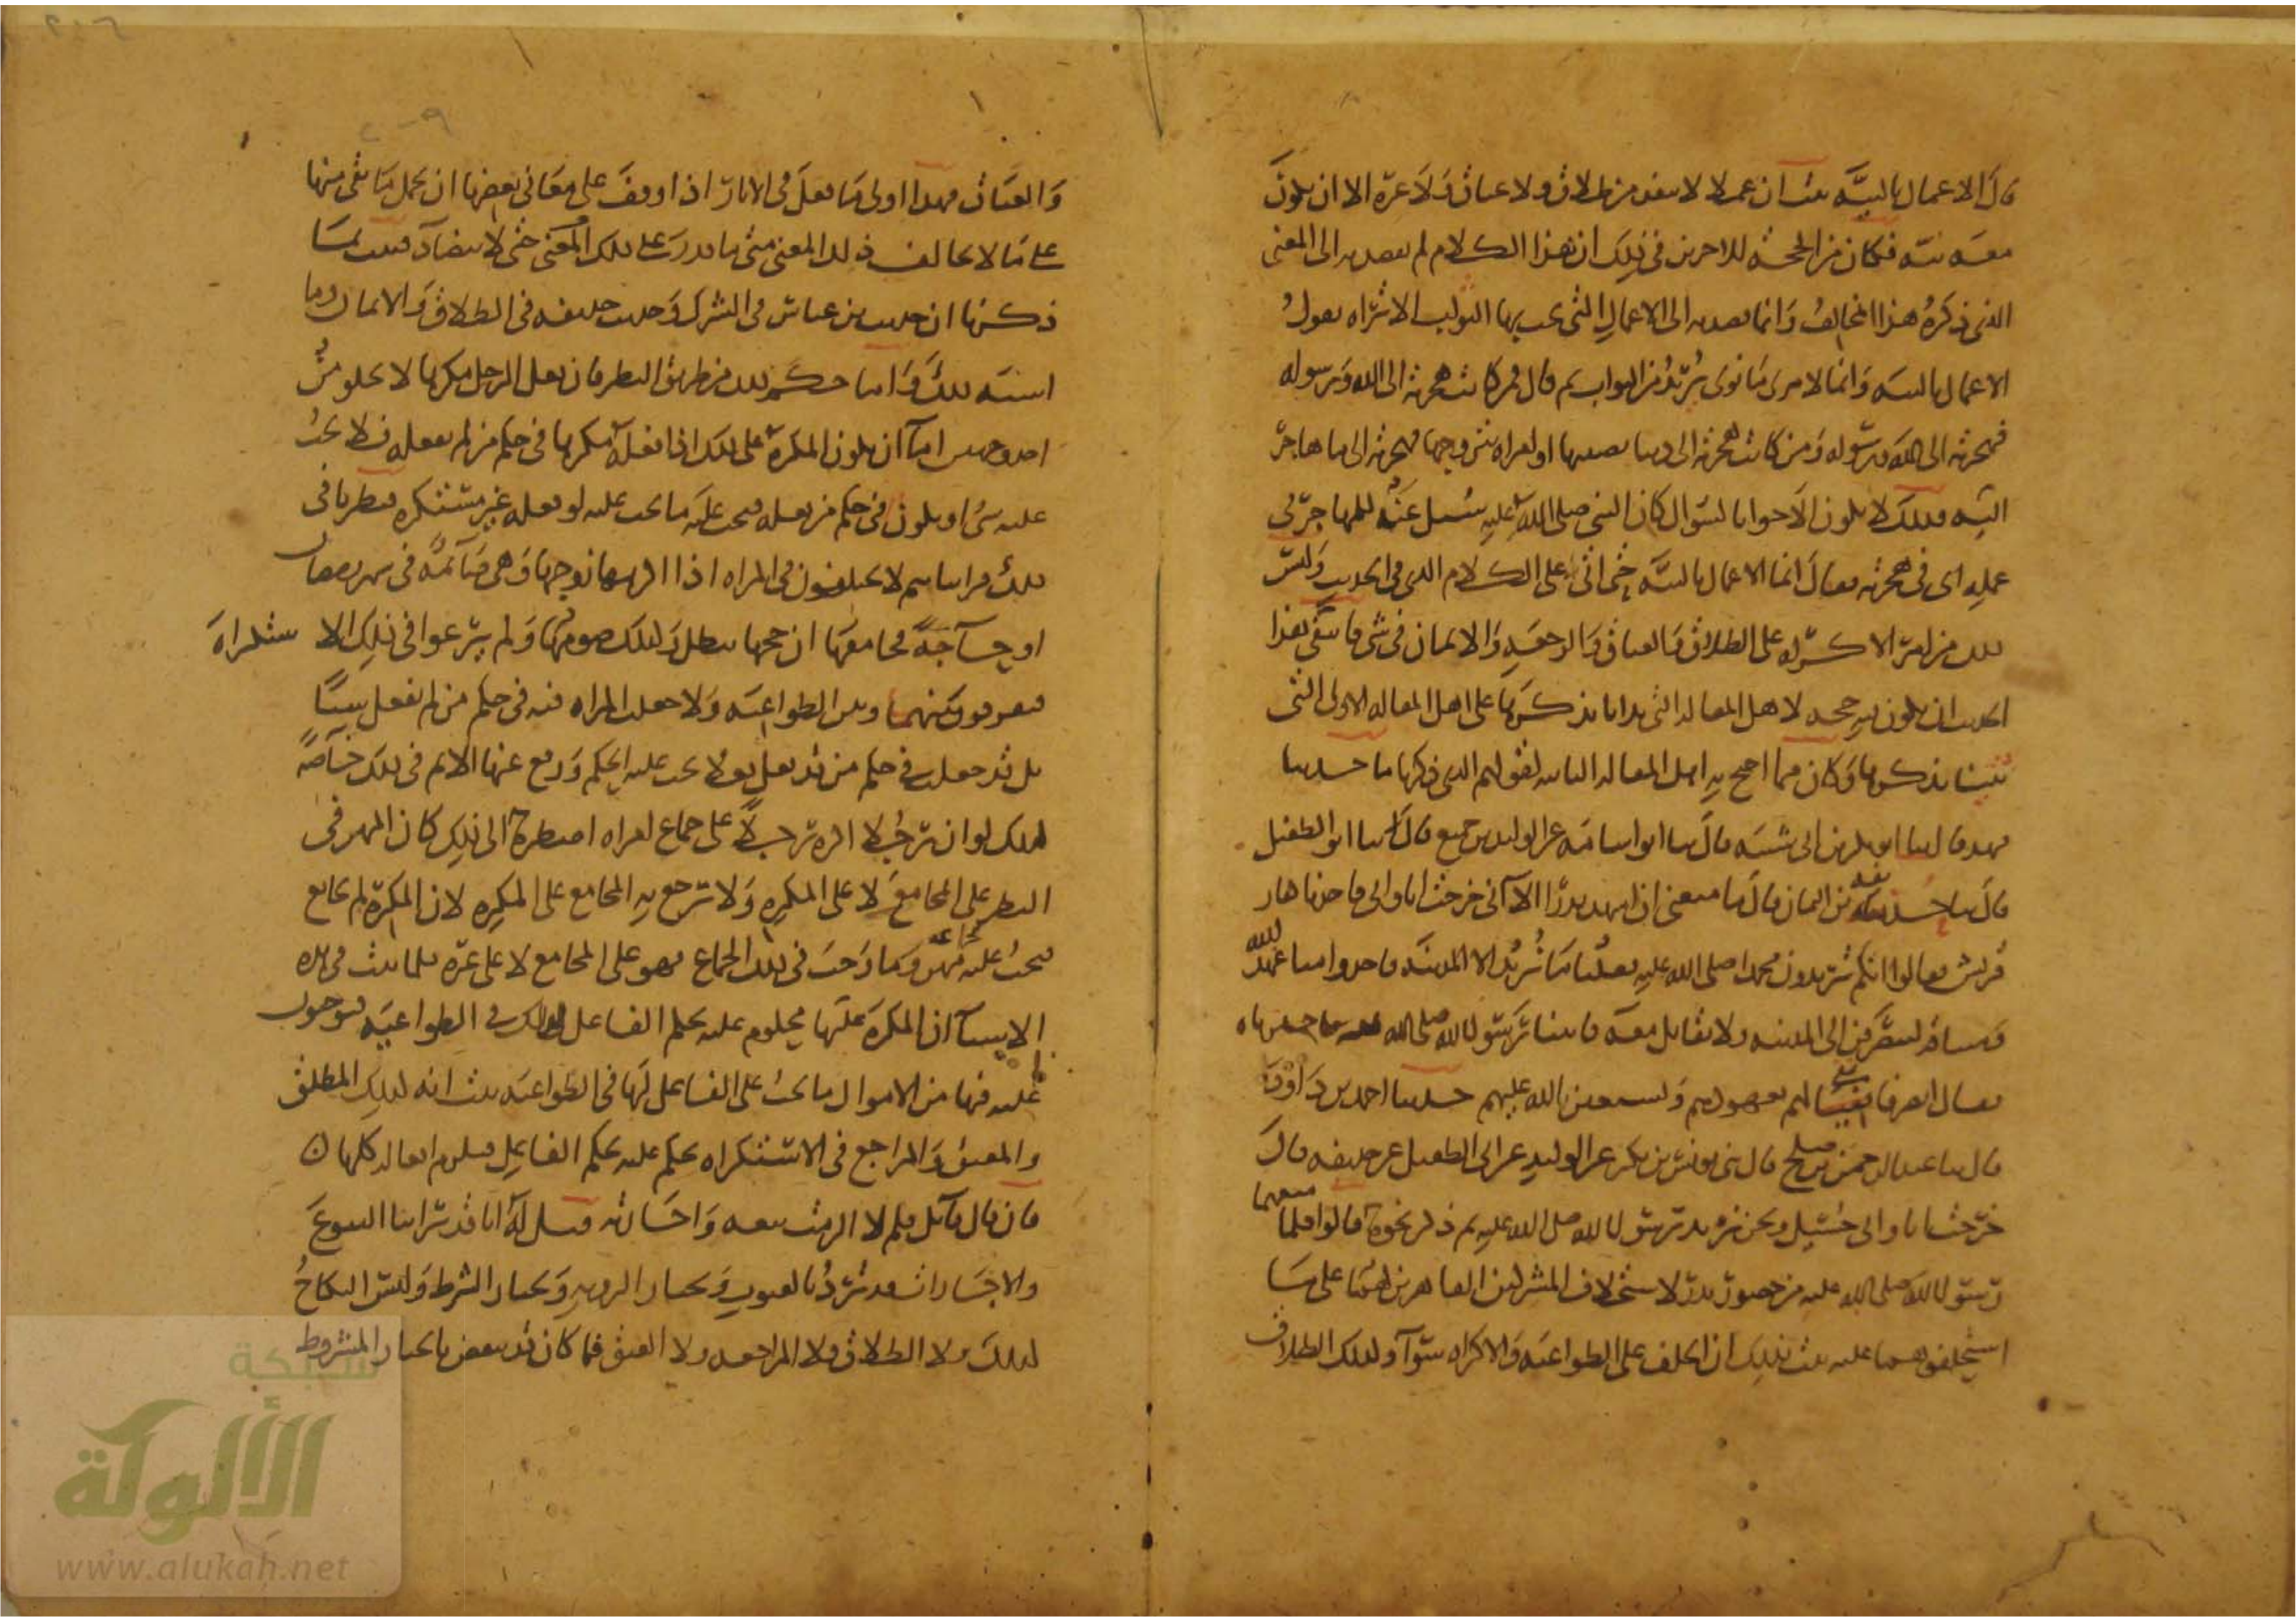 قال الاعمال بالنيه ثبت ان عملا لا ينفذ من طلاق ولا عتاق ولا غيره الا ان يكون
معه نيه فكان من الحجه للاخرين في ذلك ان هذا الكلام لم يقصد به الى المعنى
الذي ذكره هذا المخالف وانما يقصد به الى الاعمال التي يجب بها الثواب الا تراه يقول
الاعمال بالنيه وانما لامرئ ما نوى يريد من الثواب ثم قال فمن كانت هجرته الى الله ورسوله
فهجرته الى الله ورسوله ومن كانت هجرته الى دنيا يصيبها او امراه يتزوجها فهجرته الى ما هاجر
اليه فذلك لا يكون الا جوابا لسؤال كان النبي صلى الله عليه سئل عنه للمهاجر في
عمله اي في هجرته فقال انما الاعمال بالنيه حتى اتى على الكلام الذي في الحديث وليس
ذلك من امر الاكراه على الطلاق والعتاق والرجعه والايمان في شي فانتفى بهذا
الحديث ان يكون فيه حجه لاهل المقاله التي بدانا بذكرها على اهل المقاله الاولى التي
ثنينا بذكرها وكان مما احتج به اهل المقاله الثانيه لقولهم الذي ذكرنا ما حدثنا
فهد قال ثنا ابو بكر بن ابي شيبه قال ثنا ابو اسامه عن الوليد بن جميع قال ثنا ابو الطفيل
قال ثنا حذيفه بن اليمان قال ما منعني ان اشهد بدرا الا اني خرجت انا وابي فاخذنا كفار
قريش فقالوا انكم تريدون محمدا صلى الله عليه فقلنا ما نريد الا المدينه فاخذوا منا عهد الله
وميثاقه لننصرفن الى المدينه ولا نقاتل معه فاتينا رسول الله صلى الله عليه فاخبرناه
فقال انصرفا نفي لهم بعهودهم ونستعين بالله عليهم حدثنا احمد بن داود
قال ثنا عبد الرحمن بن صالح قال ثني يونس بن بكير عن الوليد عن ابي الطفيل عن حذيفه قال
خرجت انا وابي حسيل ونحن نريد رسول الله صلى الله عليه ثم ذكر نحوه قالوا فلما منعهما
رسول الله صلى الله عليه من حضور بدر لاستحلاف المشركين القاهرين لهما على ما
استحلفوهما عليه ثبت بذلك ان الحلف على الطواعيه والاكراه سواء وكذلك الطلاق
والعتاق فهذا اولى ما فعل في الاثار اذا وقف على معاني بعضها ان يحمل ما بقي منها
على ما لا يخالف ذلك المعنى متى ما قدر على ذلك المعنى حتى لا يتضاد فثبت بما
ذكرنا ان حديث بن عباس في الشرك وحديث حذيفه في الطلاق والايمان وما
اشبه ذلك واما حكم ذلك من طريق النظر فان فعل الرجل مكرها لا يخلو من
احد وجهين اما ان يكون المكره على ذلك اذا فعله مكرها في حكم من لم يفعله فلا يجب
عليه شي او يكون في حكم من فعله فيجب عليه ما يجب عليه لو فعله غير مستكره فنظرنا في
ذلك فرايناهم لا يختلفون في المراه اذا اكرهها زوجها وهي صائمه في شهر رمضان
او حاجه فجامعها ان حجها يبطل وكذلك صومها ولم يراعوا في ذلك الاستكراه
فيفرقوا بينها وبين الطواعيه ولا جعلت المراه فيه في حكم من لم يفعل شيئا
بل قد جعلت في حكم من قد فعل فعلا يجب عليه الحكم ورفع عنها الاثم في ذلك خاصه
كذلك لو ان رجلا اكره رجلا على جماع امراه اضطره الى ذلك كان المهر في
النظر على المجامع لا على المكره ولا يرجع به المجامع على المكره لان المكره لم يجامع
فيجب عليه بجماعه مهر وما وجب في ذلك الجماع فهو على المجامع لا على غيره فلما ثبت في هذه
الاشياء ان المكره عليها محكوم عليه بحكم الفاعل لذلك في الطواعيه فيوجبون
عليه فيها من الاموال ما يجب على الفاعل لها في الطواعيه ثبت انه كذلك المطلق
والمعتق والمراجع في الاستكراه يحكم عليه بحكم الفاعل فيلزم افعاله كلها
فان قال قائل فلم لا اجزت بيعه واجارته قيل له انا قد راينا البيوع
والاجارات قد ترد بالعيوب وبخيار الرويه وبخيار الشرط وليس النكاح
كذلك ولا الطلاق ولا المراجعه ولا العتق فما كان قد ينقض بالخيار المشروط
شبكة
الألوكة
www.alukah.net